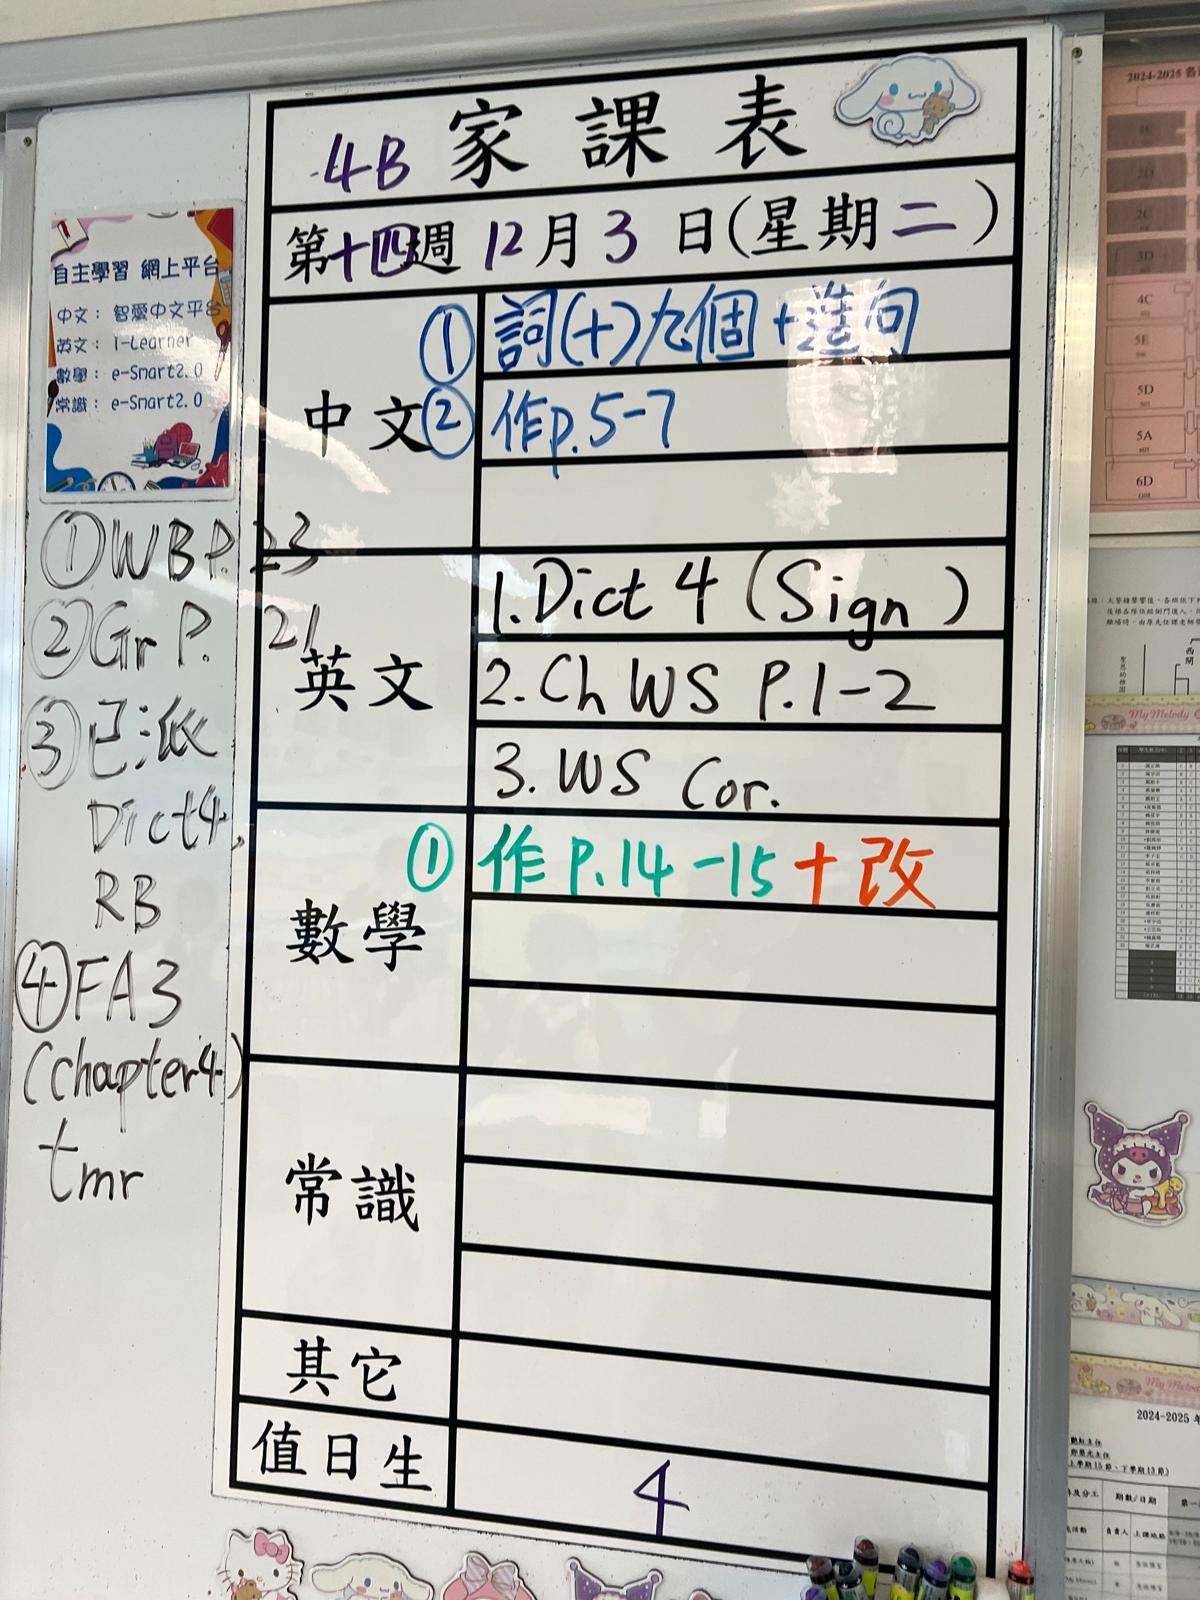 4B 家課表
第十四週 12月3日(星期二)
中文
① 詞(十)九個+造句
② 作p.5-7
英文
1. Dict 4 (Sign)
2. Ch WS P.1-2
3. WS Cor.
數學
① 作 P.14-15+改
常識
其它
值日生
4
自主學習 網上平台
中文：智愛中文平台
英文：i-Learner
數學：e-Smart2.0
常識：e-Smart2.0
① WB P.23
② Gr P. 21
③ 已派
Dict4,
RB
④ FA3
(chapter4)
tmr
2024-2025
4C
5E
5D
5A
6D
西閘
My Melody
My Melody
2024-2025
上學期15節、下學期13節)
期數/日期
負責人
上課地點